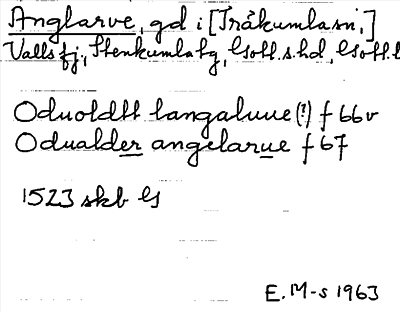 Anglarve, gd i [Träkumla sn,]
Valls fj, Stenkumla tg, Gotl. s. hd, Gotl. l
Oduoldtt langaluue (?) f 66v
Odualder angelarue f 67
1523 skb G
E. M-s 1963